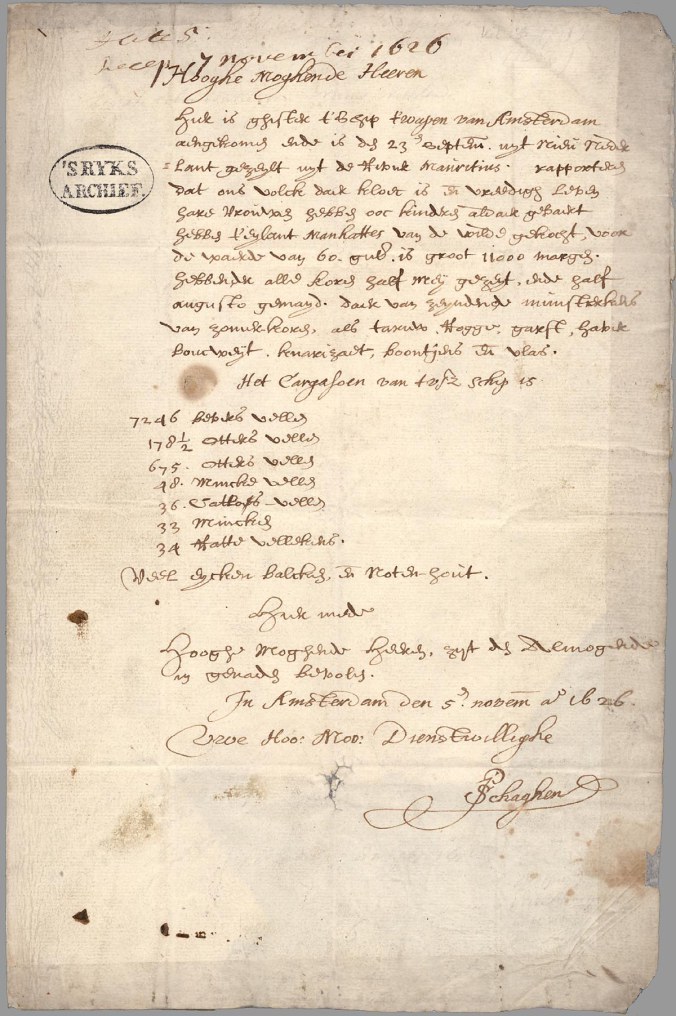 Recep. 7 Novemb. 1626
Hooghe Moghende Heeren
'SRYKS
ARCHIEF.
Hier is ghister t'Schip t'wapen van Amsterdam
aengekomen ende is den 23en Septem. uyt Nieu Neder
lant gezeylt uyt de Rivier Mauritius. rapporteren
dat ons volck daer kloec is en vreedigh leven
hare Vrouwen hebben ooc kinderen aldaer gebaert
hebben t'eylant Manhattes van de wilde gekocht, voor
de waerde van 60. guld. is groot 11000 margen.
hebbende alle koren half Mey gezeyt, ende half
augusto gemayd. daer van zeyndende munsterkens
van zomerkoren, als tarruw, Rogge, garst, haver
boucweyt, knarizaet, boontjens en vlas.
Het Cargasoen van tvsz schip is
7246 Bevers vellen
178½ Otters vellen
675. Otters vellen
48. Mincke vellen
36. Catloes vellen
33 Mincken
34 Ratte vellekens.
Veel eycken balcken, en Noten-hout.
Hier mede
Hooghe Moghende Heeren, zijt den Almogende
in genaden bevolen.
In Amsterdam den 5en novem ao 1626.
Uwe Hoo: Moo: Dienstwillighe
P Schaghen